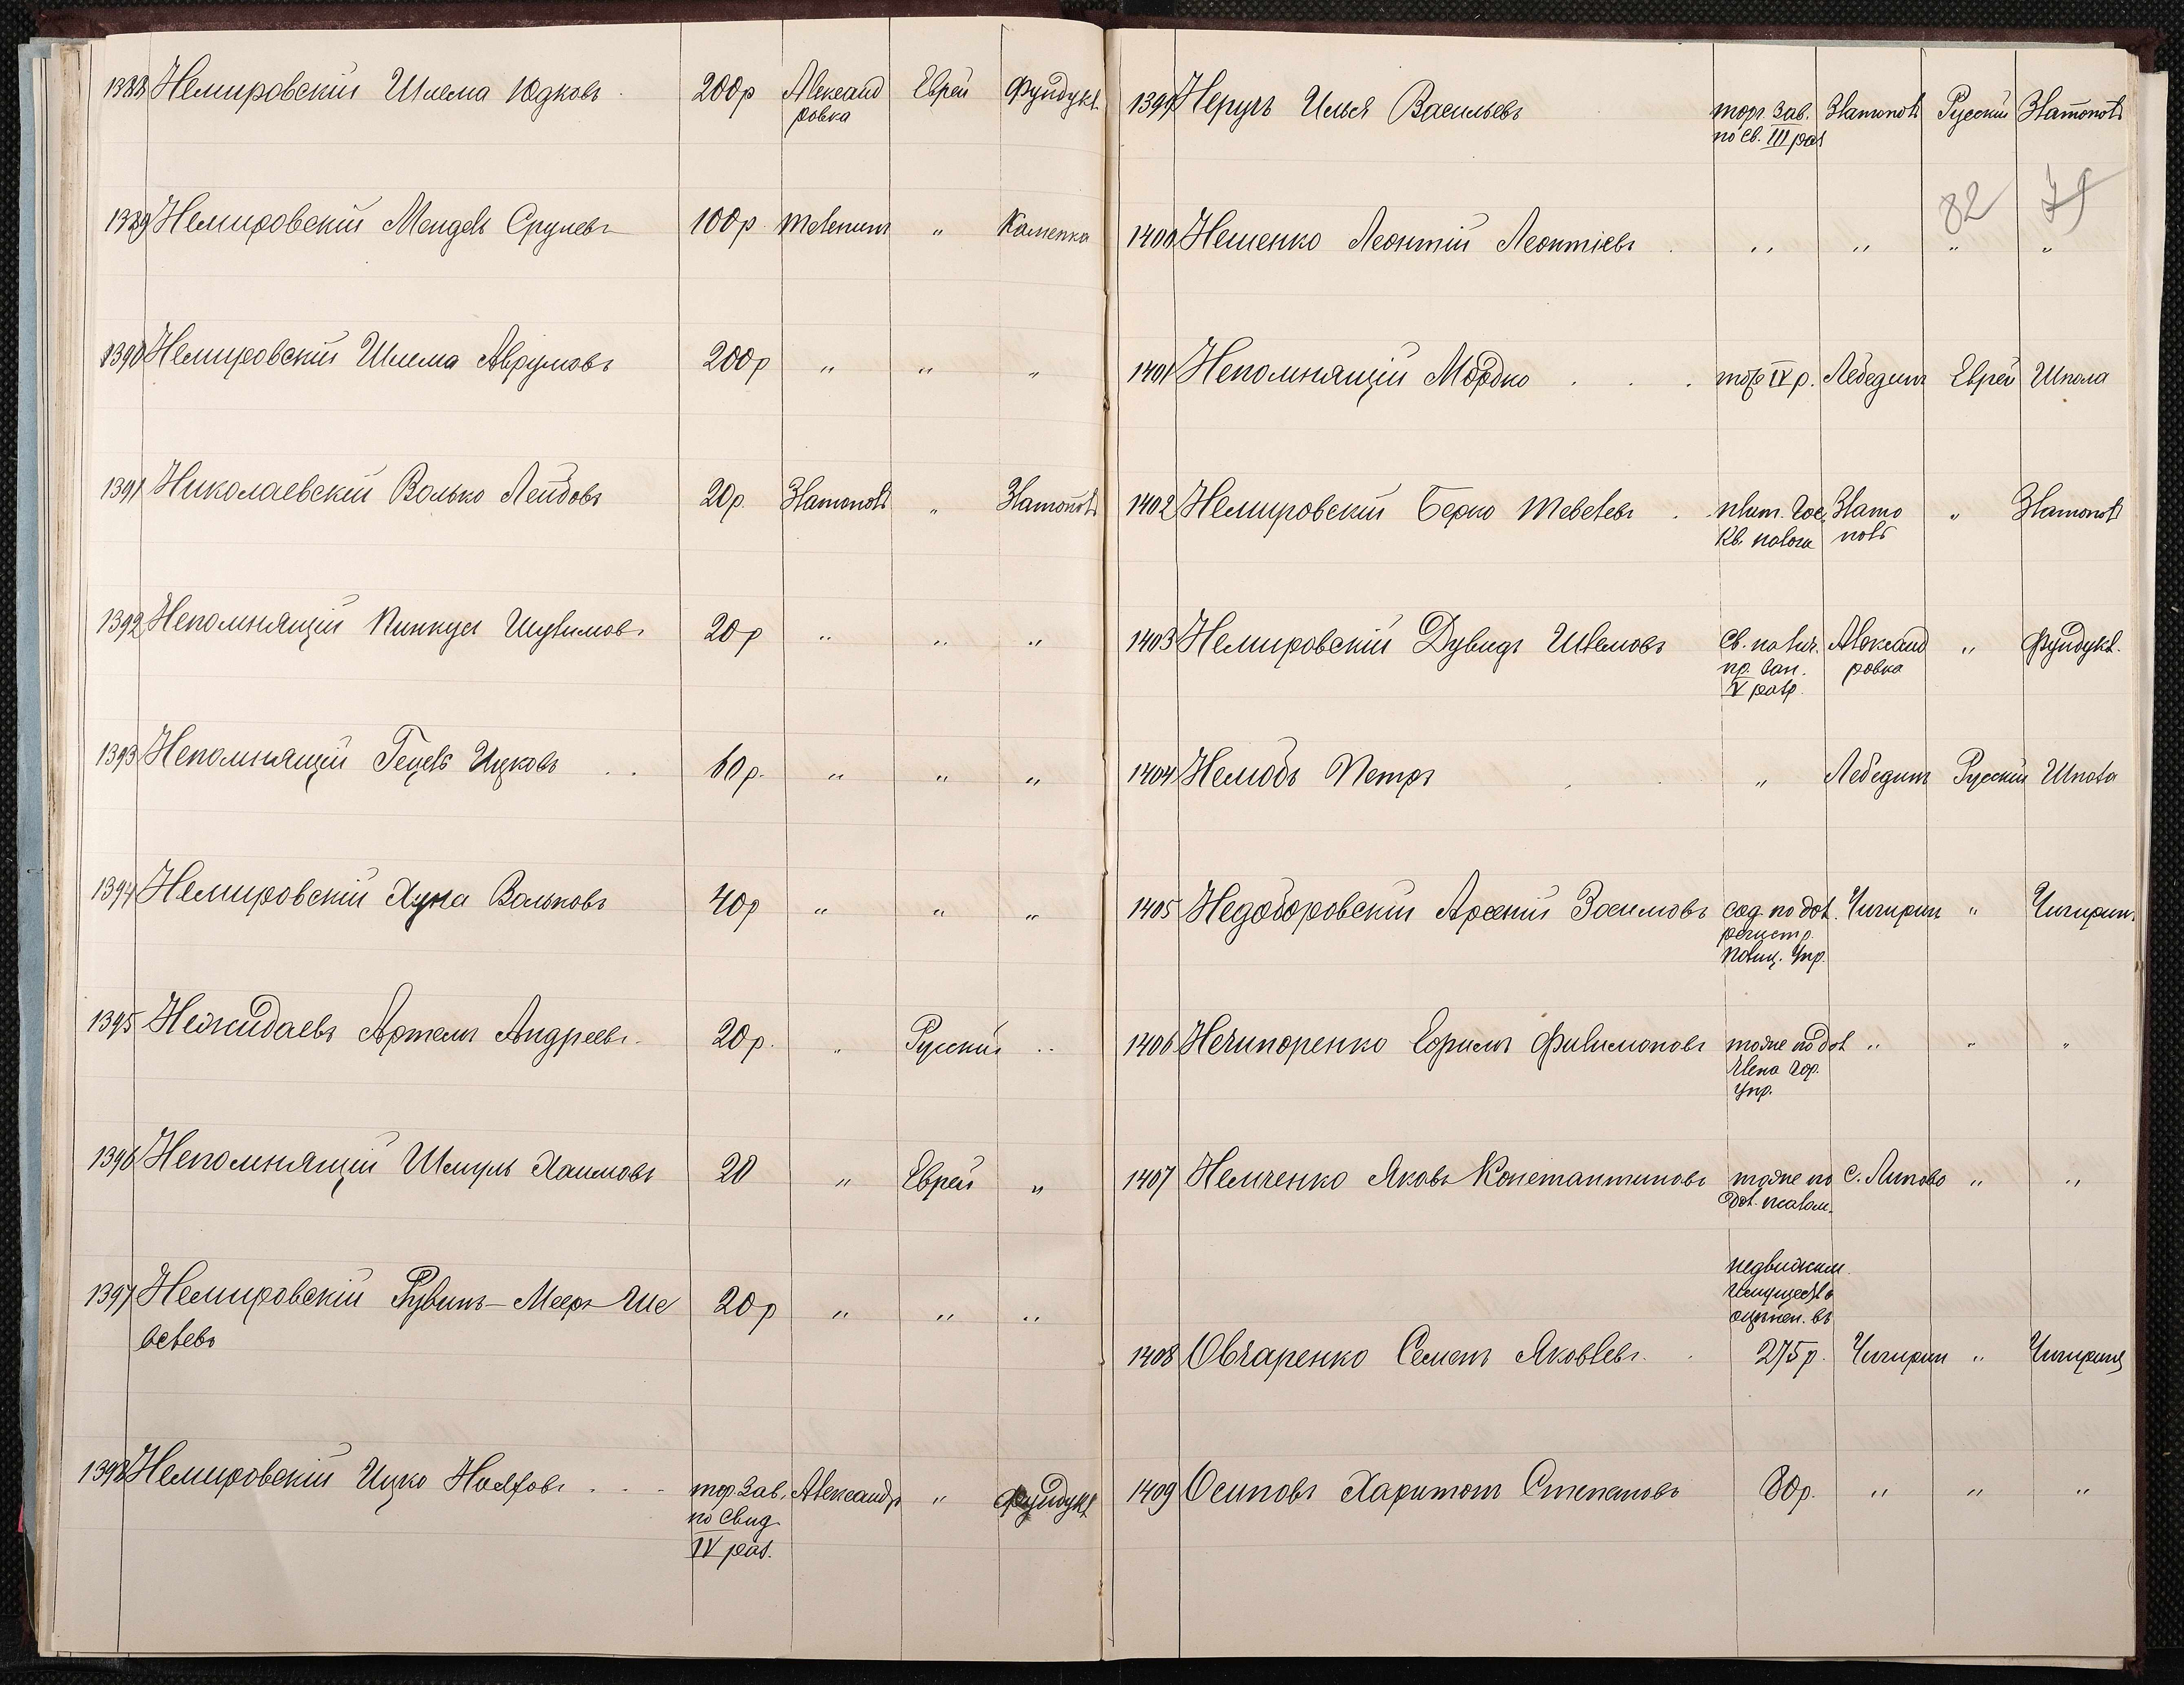 1388 Немировскій Шлема Юдковъ . 200р Александ Еврей Фундукл.
ровка
1389 Немировскій Мендель Срулевъ 100р. Телепин „ Каменка
1390 Немировскій Шлема Аврумовъ 200р „ „ „
1391 Николаевскій Волько Лейбовъ 20р. Златополь „ Златополь
1392 Непомнящій Пинкус Шулимовъ 20р „ „ „
1393 Непомнящій Гецель Ицковъ . . 60р. „ „ „
1394 Немировскій Хуна Вольковъ 40р „ „ „
1395 Нежидаевъ Артемъ Андреевъ. 20р. „ Русскій „
1396 Непомнящій Шмуль Хаимовъ 20 „ Еврей „
1397 Немировскій Рувинъ-Меер 20р „ „ „
1398 Немировскій Ицко . . . тор. зав. Александр „ Фундукл
по свид.
IV раз.
1399 Неручъ Илья Васильевъ торг. зав. Златополь Русскій Златополь
по св. III раз
82 79
1400 Нешенко Леонтій Леонтіевъ . „ „ „ „
1401 Непомнящій Мордко . . . тор IV р. Лебединъ Еврей Шпола
1402 Немировскій Берко Тевелевъ . плат. гос. Злато „ Златополь
кв. налога поль
1403 Немировскій Дувидъ Шлемовъ св. на лич. Александ „ Фундукл.
пр. зан. ровка
V разр.
1404 Немобъ Петръ . . „ Лебединъ Русскій Шпола
1405 Недоборовскій Арсеній Зосимовъ сод. по дол. Чигирин „ Чигиринъ
регистр.
полиц. Упр.
1406 Нечипоренко Ефримъ Филимоновъ тоже по дол „ „ „
члена гор.
Упр.
1407 Немченко Яковъ Константиновъ тоже по с. Липово „ „
дол. псалом.
недвижим.
имущество
оцѣнен. въ
1408 Овчаренко Семенъ Яковлевъ . . 275р. Чигирин „ Чигиринъ
1409 Осиповъ Харитонъ Степановъ 80р. „ „ „